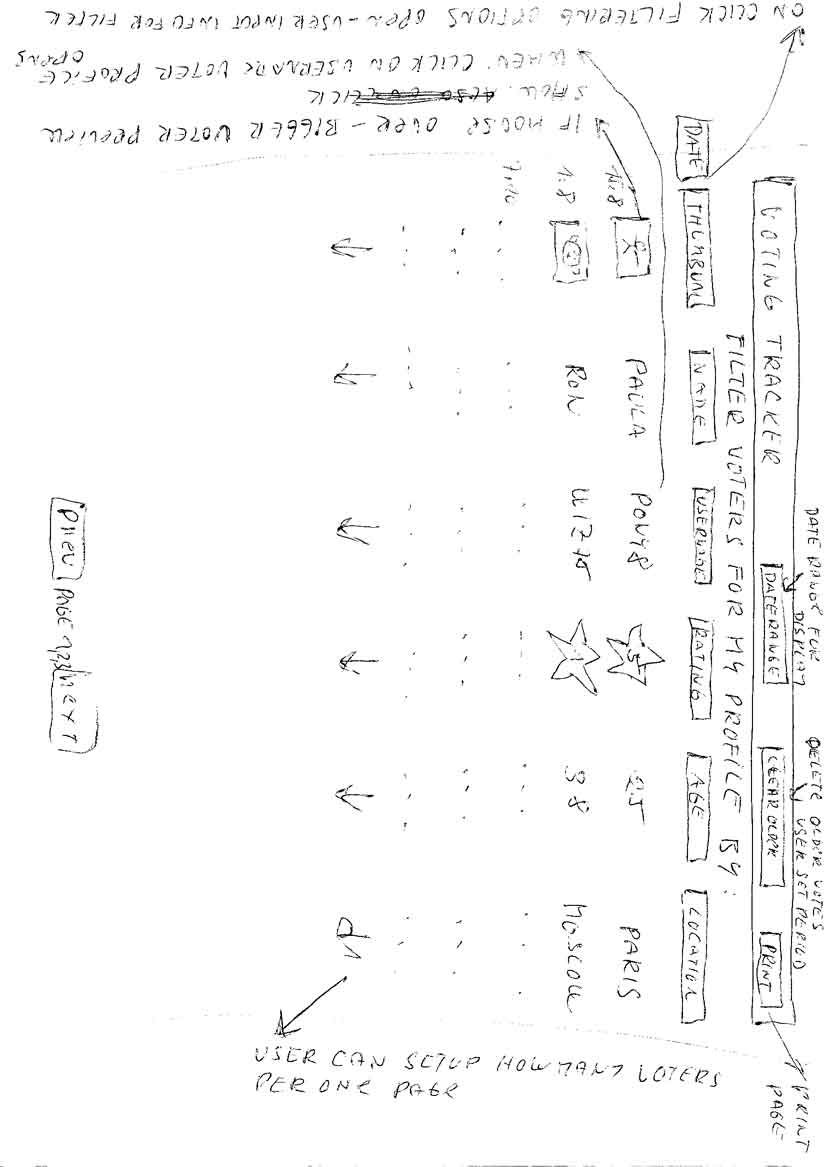 VOTING TRACKER
DATE RANGE
CLEAR OLDER
PRINT
DATE RANGE FOR
DISPLAY
DELETE OLDER VOTES
USER SET PERIOD
PRINT
PAGE
FILTER VOTERS FOR MY PROFILE BY:
DATE THUMBNAIL NAME USERNAME RATING AGE LOCATION
PAULA PONY8 5 25 PARIS
1.8 RON 38 MOSCOW
USER CAN SETUP HOW MANY VOTERS
PER ONE PAGE
prev PAGE next
IF MOUSE OVER - BIGGER VOTER PREVIEW
SHOW.
WHEN CLICK ON USERNAME VOTER PROFILE
OPENS
ON CLICK FILTERING OPTIONS OPEN - USER INPUT INFO FOR FILTER